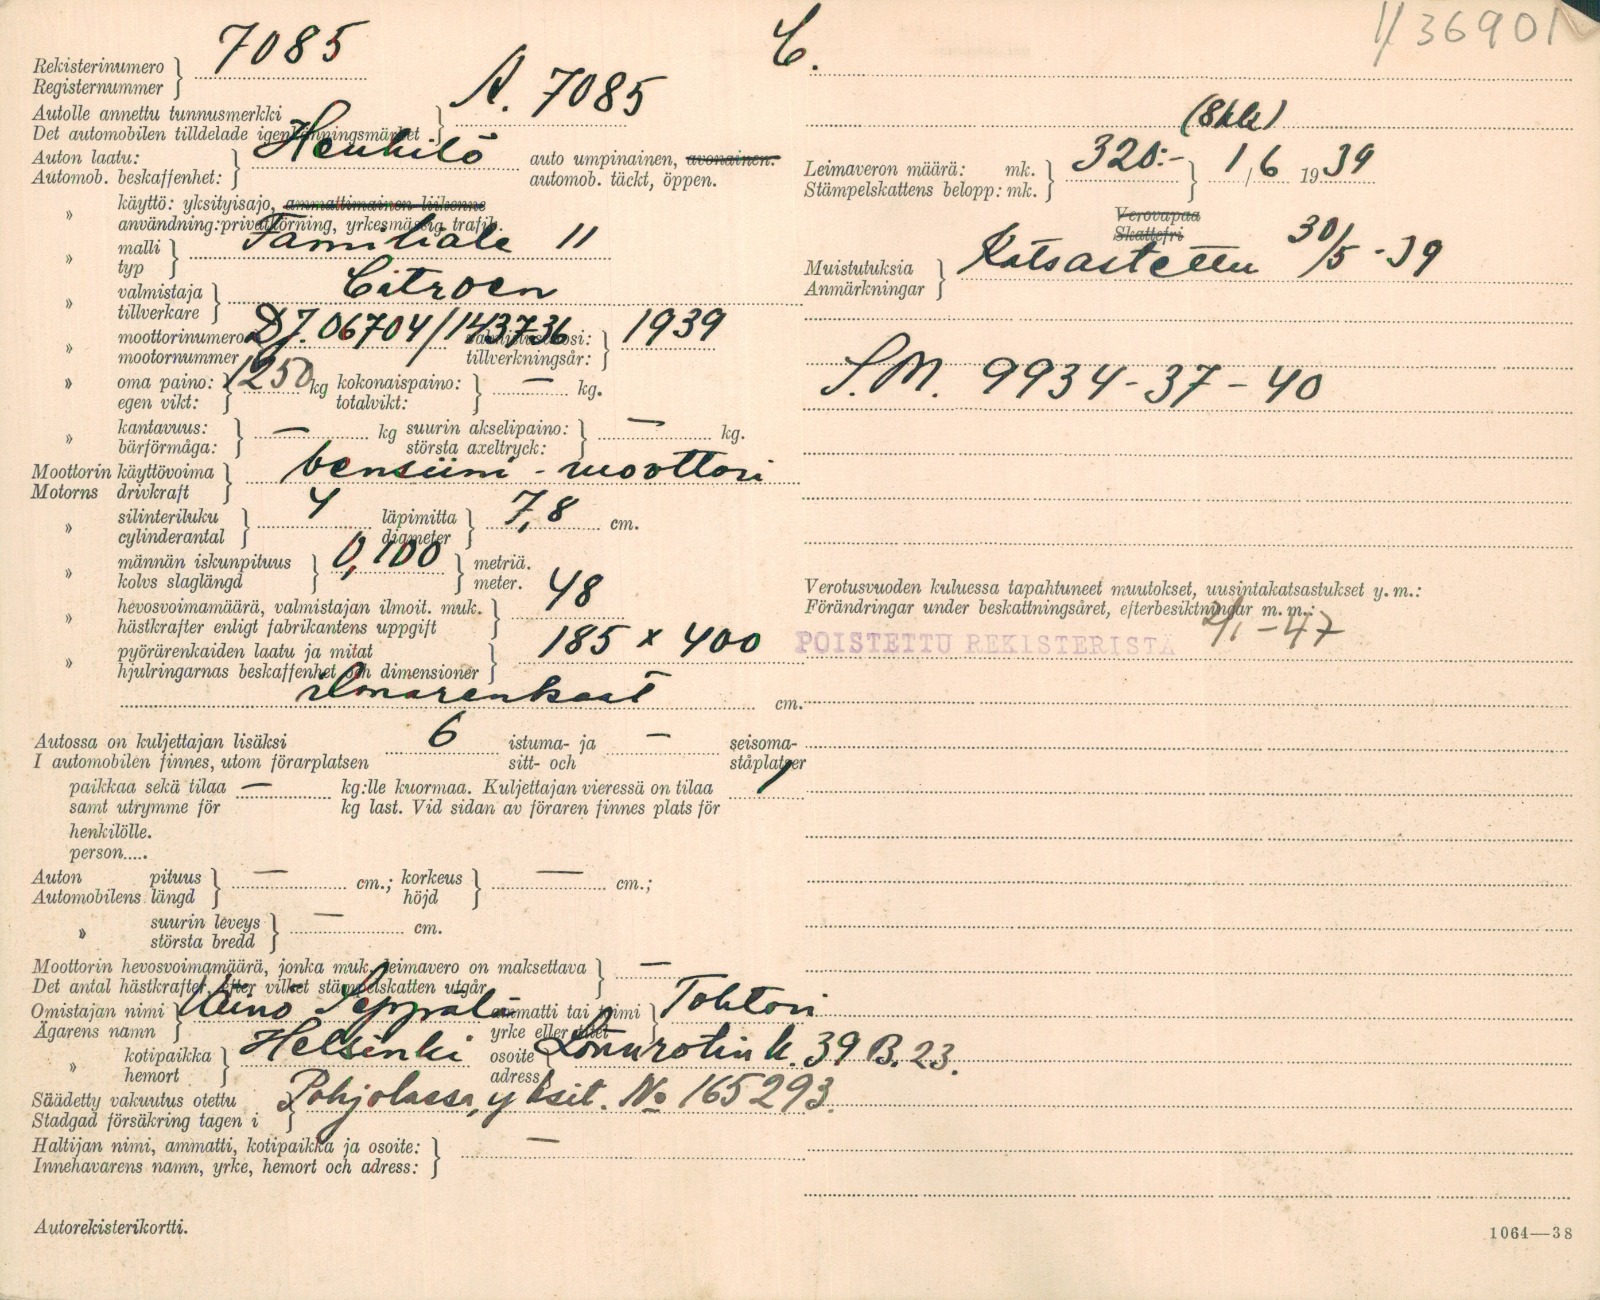 1/36901
7085
C.
Rekisterinumero
Registernummer
A. 7085
Autolle annettu tunnusmerkki
Det automobilen tilldelade igenkänningsmärket
Auton laatu: Henkilö auto umpinainen, avonainen.
Automob. beskaffenhet: automob. täckt, öppen.
» käyttö: yksityisajo, ammattimainen liikenne
användning: privatkörning, yrkesmässig trafik.
» malli Familiale 11
typ
» valmistaja Citroen
tillverkare
» moottorinumero DJ. 06704/143736 valmistusvuosi: 1939
mootornummer tillverkningsår:
» oma paino: 1250 kg kokonaispaino: — kg.
egen vikt: totalvikt:
» kantavuus: — kg suurin akselipaino: — kg.
bärförmåga: största axeltryck:
Moottorin käyttövoima bensiini-moottori
Motorns drivkraft
» silinteriluku 4 läpimitta 7,8 cm.
cylinderantal diameter
» männän iskunpituus 0,100 metriä.
kolvs slaglängd meter.
» hevosvoimamäärä, valmistajan ilmoit. muk. 48
hästkrafter enligt fabrikantens uppgift
» pyörärenkaiden laatu ja mitat 185 x 400
hjulringarnas beskaffenhet och dimensioner
ilmarenkaat cm.
Autossa on kuljettajan lisäksi 6 istuma- ja — seisoma-
I automobilen finnes, utom förarplatsen sitt- och ståplatser
paikkaa sekä tilaa — kg:lle kuormaa. Kuljettajan vieressä on tilaa 1
samt utrymme för kg last. Vid sidan av föraren finnes plats för
henkilölle.
person....
Auton pituus — cm.; korkeus — cm.;
Automobilens längd höjd
» suurin leveys — cm.
största bredd
Moottorin hevosvoimamäärä, jonka muk. leimavero on maksettava —
Det antal hästkrafter, efter vilket stämpelskatten utgår
Omistajan nimi Väinö Seppälä ammatti tai toimi Tohtori
Ägarens namn yrke eller titel
» kotipaikka Helsinki osoite Lönnrotin k. 39 B. 23.
hemort adress
Säädetty vakuutus otettu Pohjolassa, yksit. No 165293.
Stadgad försäkring tagen i
Haltijan nimi, ammatti, kotipaikka ja osoite: —
Innehavarens namn, yrke, hemort och adress:
Autorekisterikortti.
(8 kk)
Leimaveron määrä: mk. 320:- 1/6 1939
Stämpelskattens belopp: mk.
Verovapaa
Skattefri
Muistutuksia Katsastettu 30/5 -39
Anmärkningar
S.M. 9934-37-40
Verotusvuoden kuluessa tapahtuneet muutokset, uusintakatsastukset y. m.:
Förändringar under beskattningsåret, efterbesiktningar m. m.:
POISTETTU REKISTERISTÄ 2/1-47
1064—38